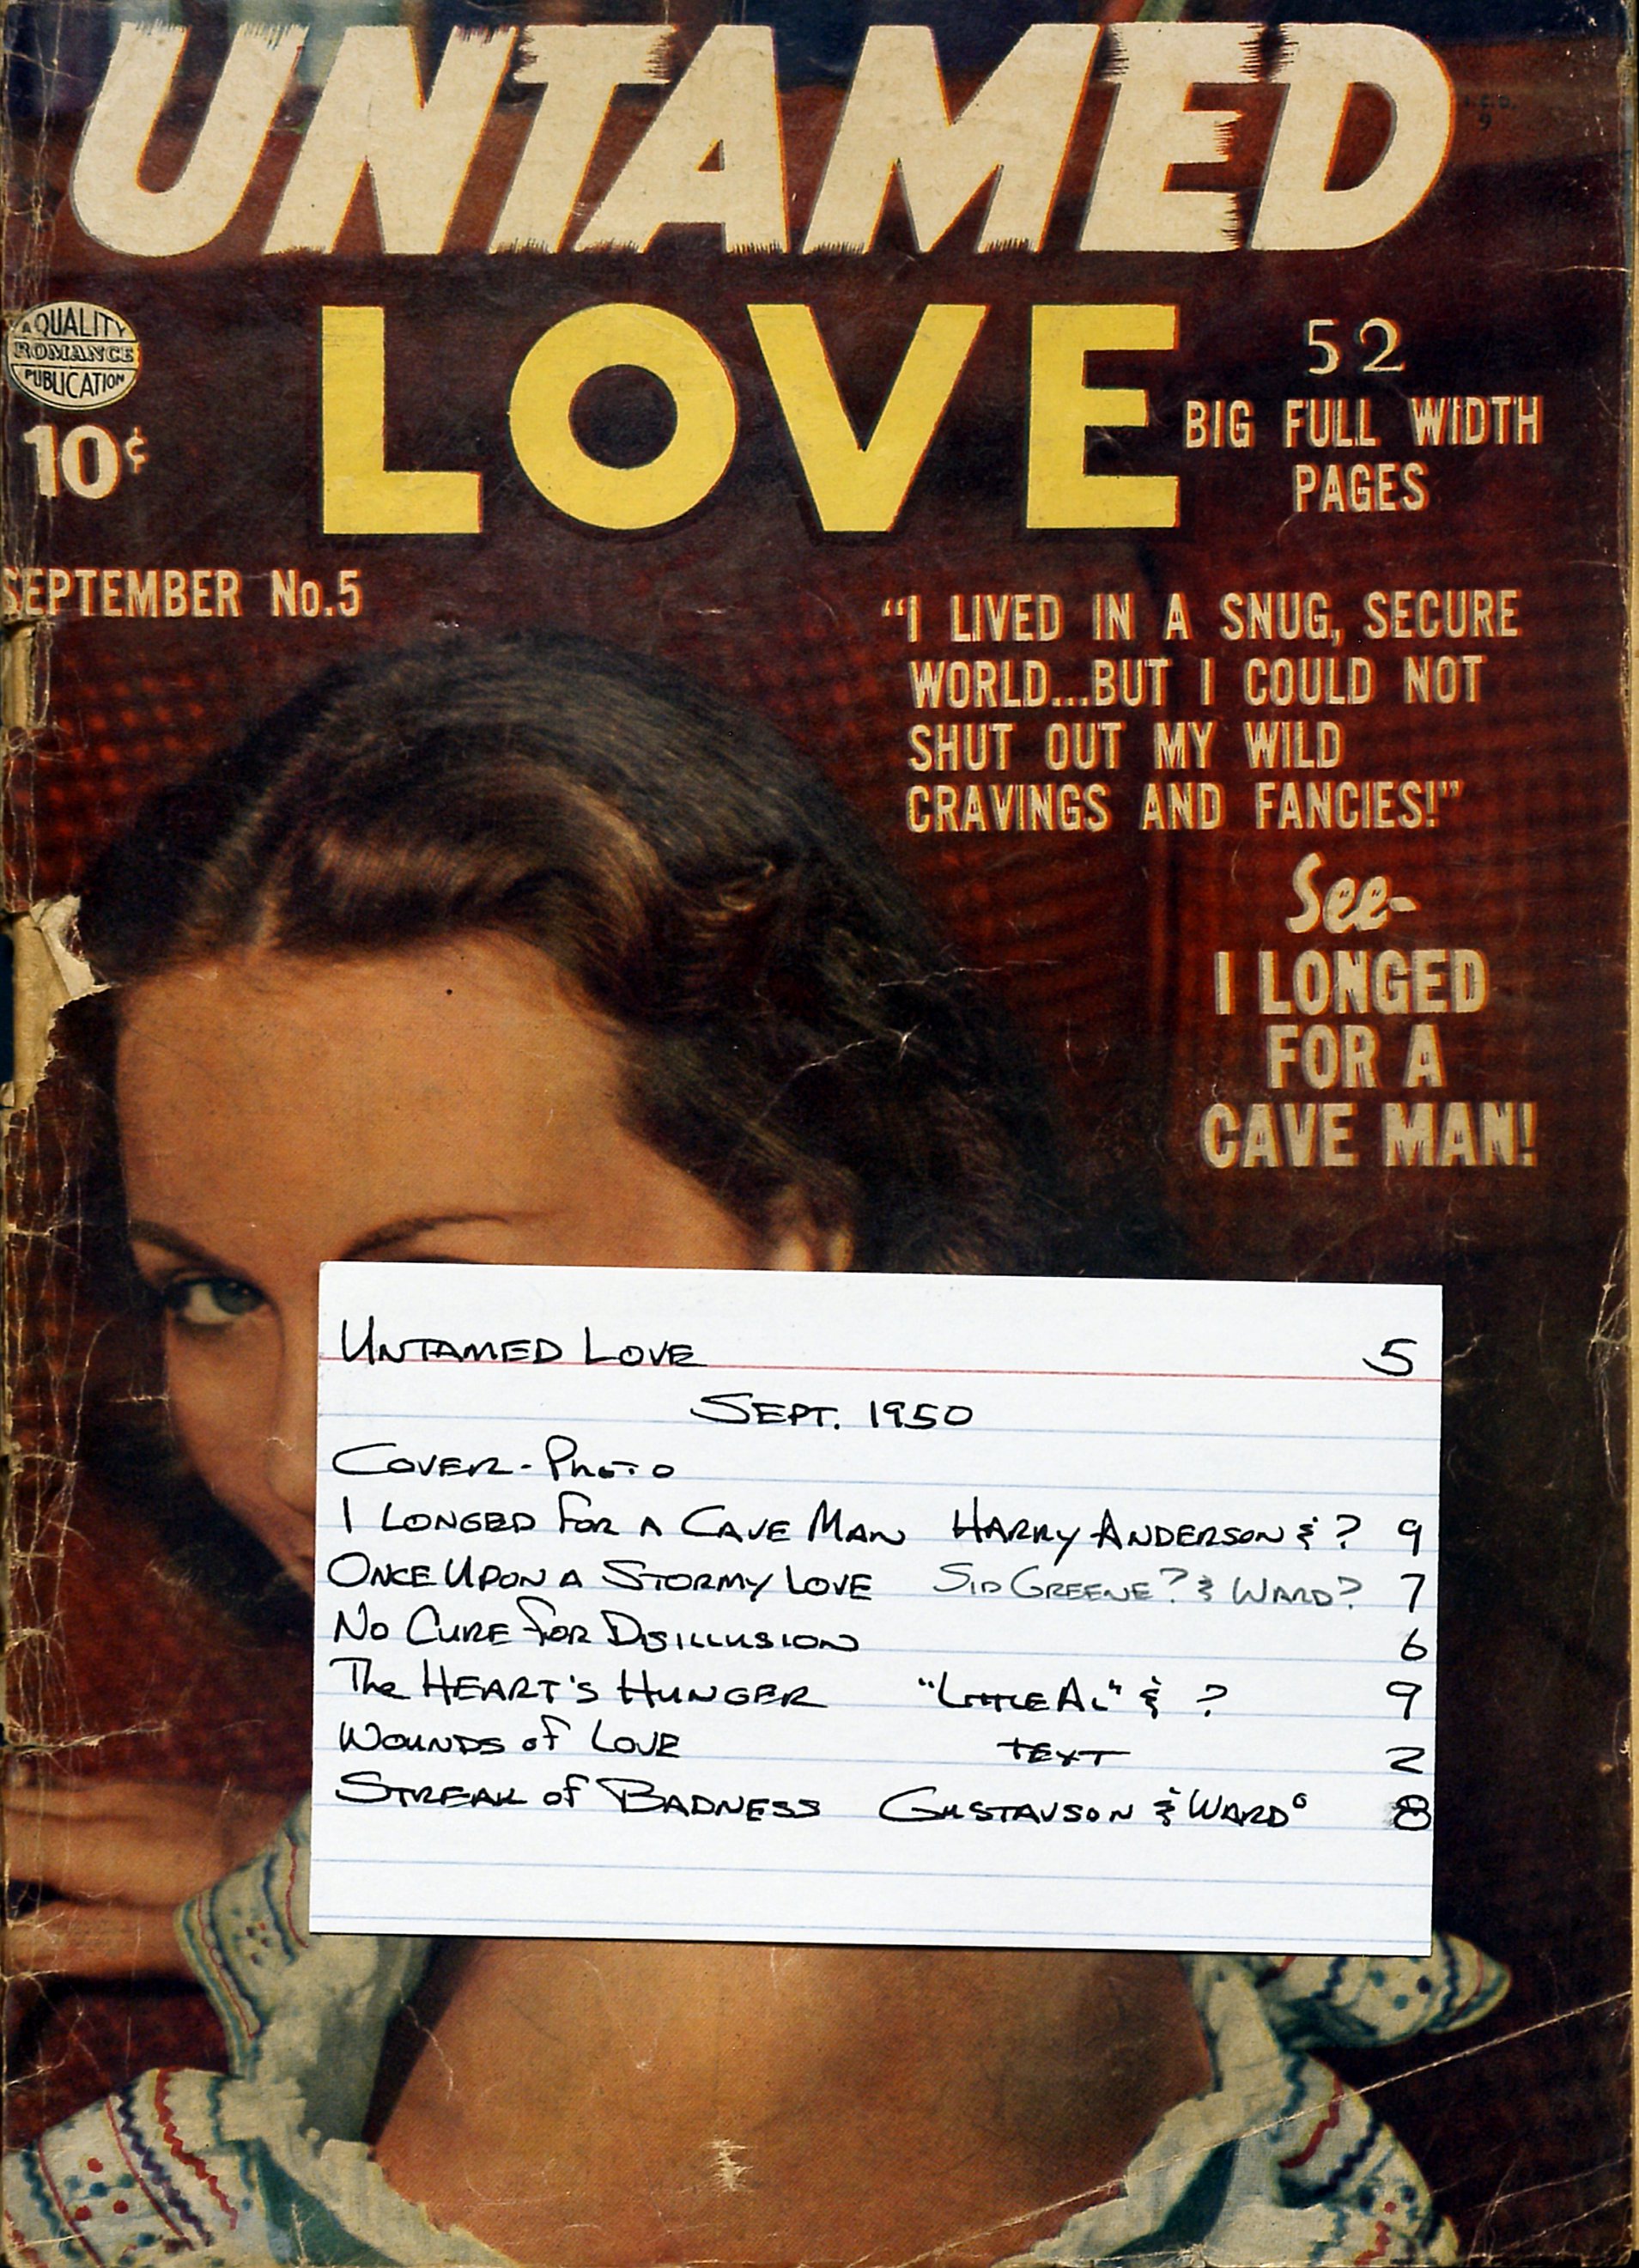 UNTAMED
LOVE
A QUALITY
ROMANCE
PUBLICATION
10¢
52
BIG FULL WIDTH
PAGES
SEPTEMBER No.5
"I LIVED IN A SNUG, SECURE
WORLD...BUT I COULD NOT
SHUT OUT MY WILD
CRAVINGS AND FANCIES!"
See-
I LONGED
FOR A
CAVE MAN!
UNTAMED LOVE 5
SEPT. 1950
COVER - PHOTO
I LONGED FOR A CAVE MAN HARRY ANDERSON & ? 9
ONCE UPON A STORMY LOVE SID GREENE? & WARD? 7
NO CURE FOR DISILLUSION 6
The HEART'S HUNGER "LITTLE AL" & ? 9
WOUNDS of LOVE TEXT 2
STREAK of BADNESS GUSTAVSON & WARD 8